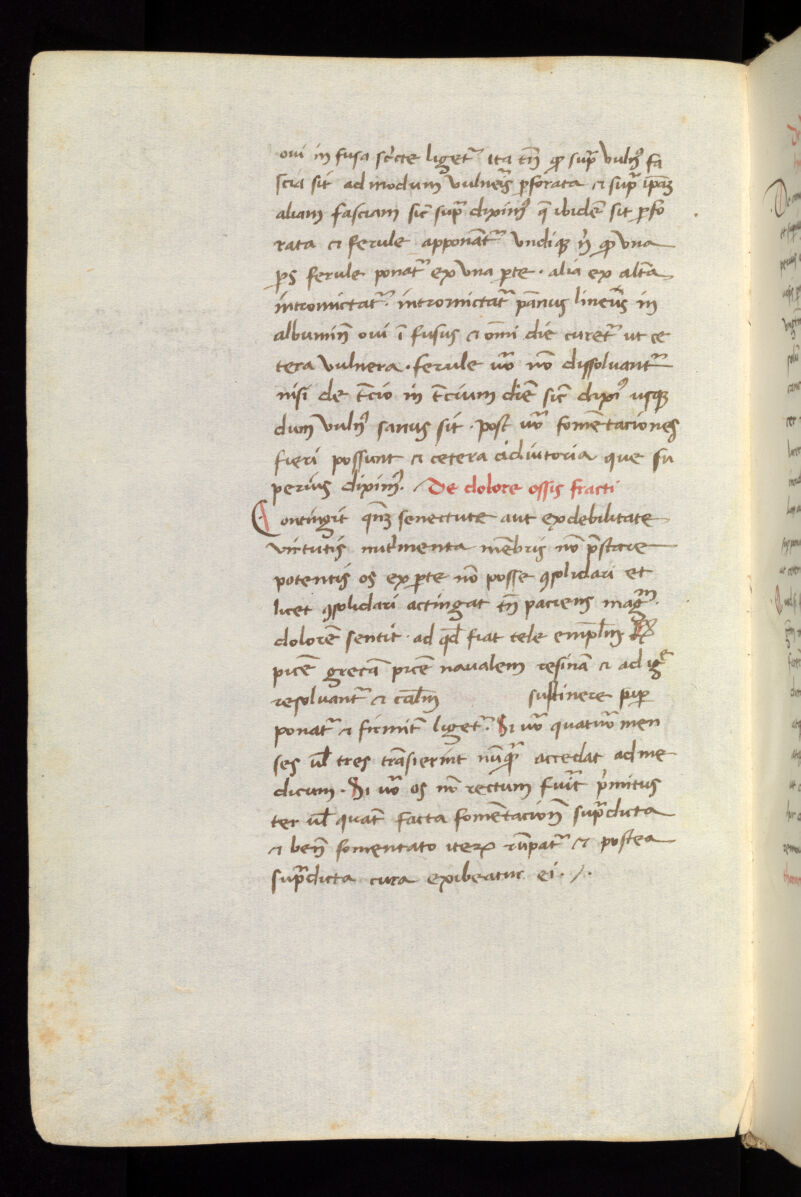 oui in fusa stricte liget᷑ ita tn̄ qͦ supͣ vuln᷑ fa
scia sit ad modum vulneris ꝑforata et supͣ ip̄am
aliam fasciam sic̄ supͣ diximꝰ q̄ ibidē sit ꝑfo
rata et ferule apponāt᷑ vndiqꝫ qͦ vna
ꝑs ferule ponat᷑ ex vna ꝑte · alia ex alt̄a
intromictat᷑ · intromictat᷑ pānus lineus in
albumin̄ oui ī fusus et om̄i die curet᷑ ut ce
tera vulnera · ferule uͦo nō dissoluant᷑
nisi de t̄cio in t̄cium diē sic̄ dixi usqꝫ
dum vuln᷑ sanus sit · post uͦo fomētaciones
fieri possunt et cetera adiutoria que su
perius diximꝰ. De dolore ossis fracti
Contingit qn̄ꝫ senectute aut ex debilitate
virtutis nut͛menta mēbris nō p̄stare
potentis os ex ꝑte nō posse ꝯsolidari et
licet ꝯsolidari actingat tn̄ paciens magͫ
dolorē sentit · ad qd̄ fiat tele empl̄m ℞
picē grecā picē naualem resinā et ad iḡ
resoluant᷑ et cal̄m sustinere sup͛
ponat᷑ et firmit͛ liget᷑. Si uͦo quatuͦor men
ses ul̄ tres trāsierint nūqͣ accedat ad me
dicum · Si uͦo os nō rectum fuīt p͛mitus
ter ul̄ quat͛ facta fomētacion̄ supͣdicta
et ben̄ fomentato iteꝝ rūpat᷑ et postea
supͣdicta cura exibeatur ei · /.